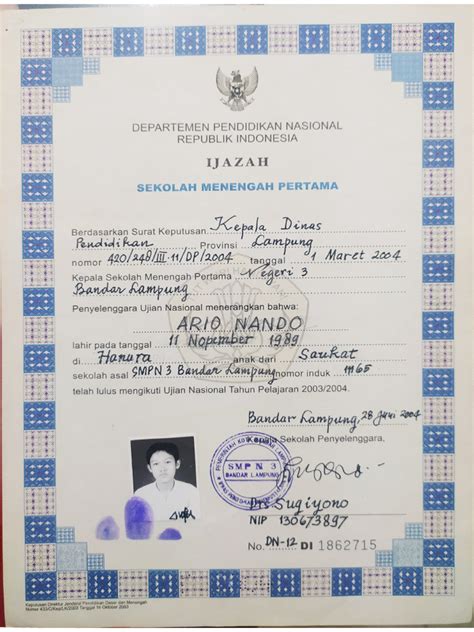 IJAZAH
DEPARTEMEN PENDIDIKAN NASIONAL
REPUBLIK INDONESIA
IJAZAH
SEKOLAH MENENGAH PERTAMA
Berdasarkan Surat Keputusan. Kepala Dinas
Pendidikan Provinsi Lampung
nomor 420/248/III.11/DP/2004 tanggal 1 Maret 2004
Kepala Sekolah Menengah Pertama Negeri 3
Bandar Lampung
Penyelenggara Ujian Nasional menerangkan bahwa:
ARIO NANDO
lahir pada tanggal 11 Nopember 1989
di Hanura anak dari Saukat
sekolah asal SMPN 3 Bandar Lampung nomor induk 11165
telah lulus mengikuti Ujian Nasional Tahun Pelajaran 2003/2004.
Bandar Lampung, 28 Juni 2004
Kepala Sekolah Penyelenggara.
SMP N 3
BANDAR LAMPUNG
Drs Sugiyono
NIP 130673897
No. DN-12 DI 1862715
Keputusan Direktur Jenderal Pendidikan Dasar dan Menengah